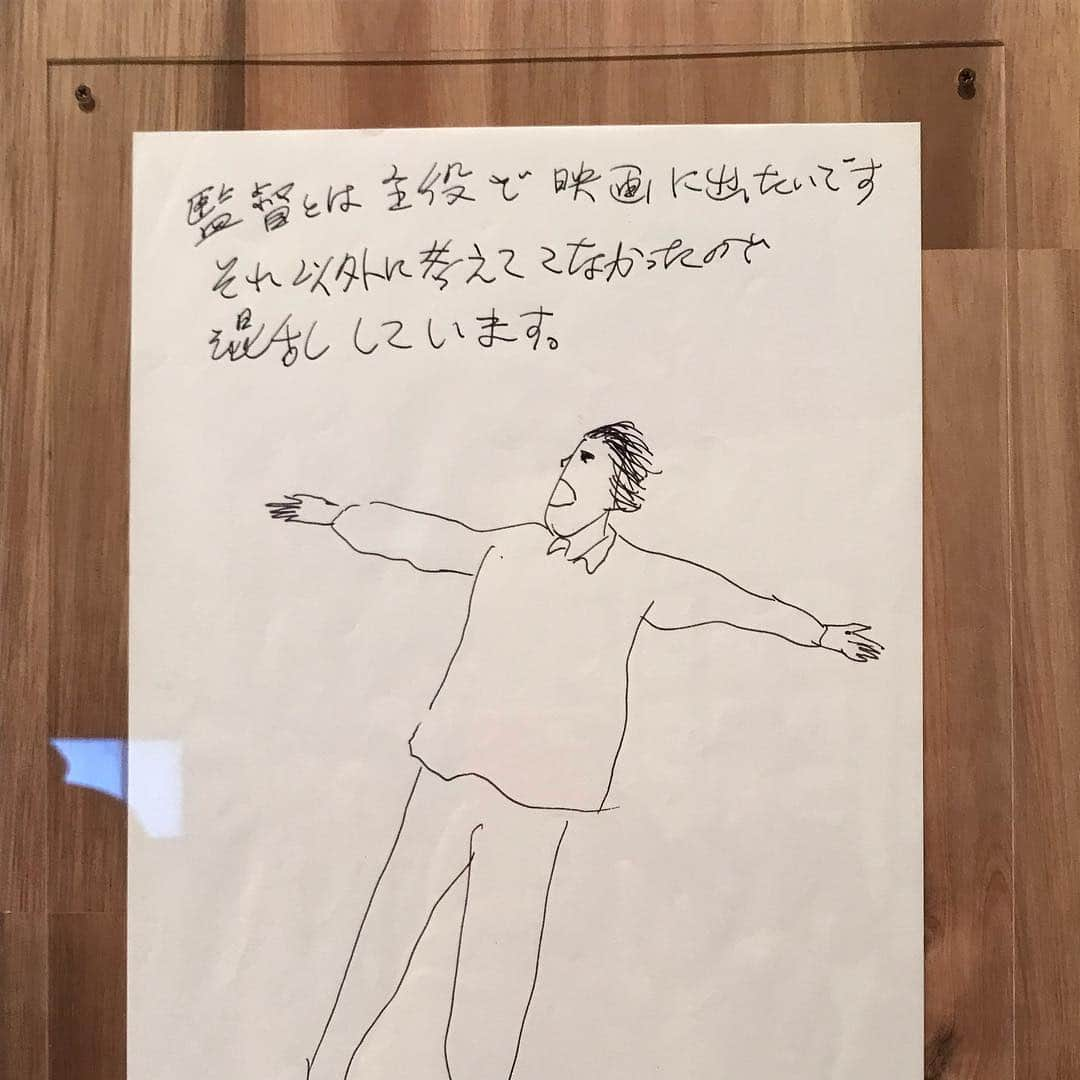 監督とは主役で映画に出たいです
それ以外に考えててなかったので
混乱しています。